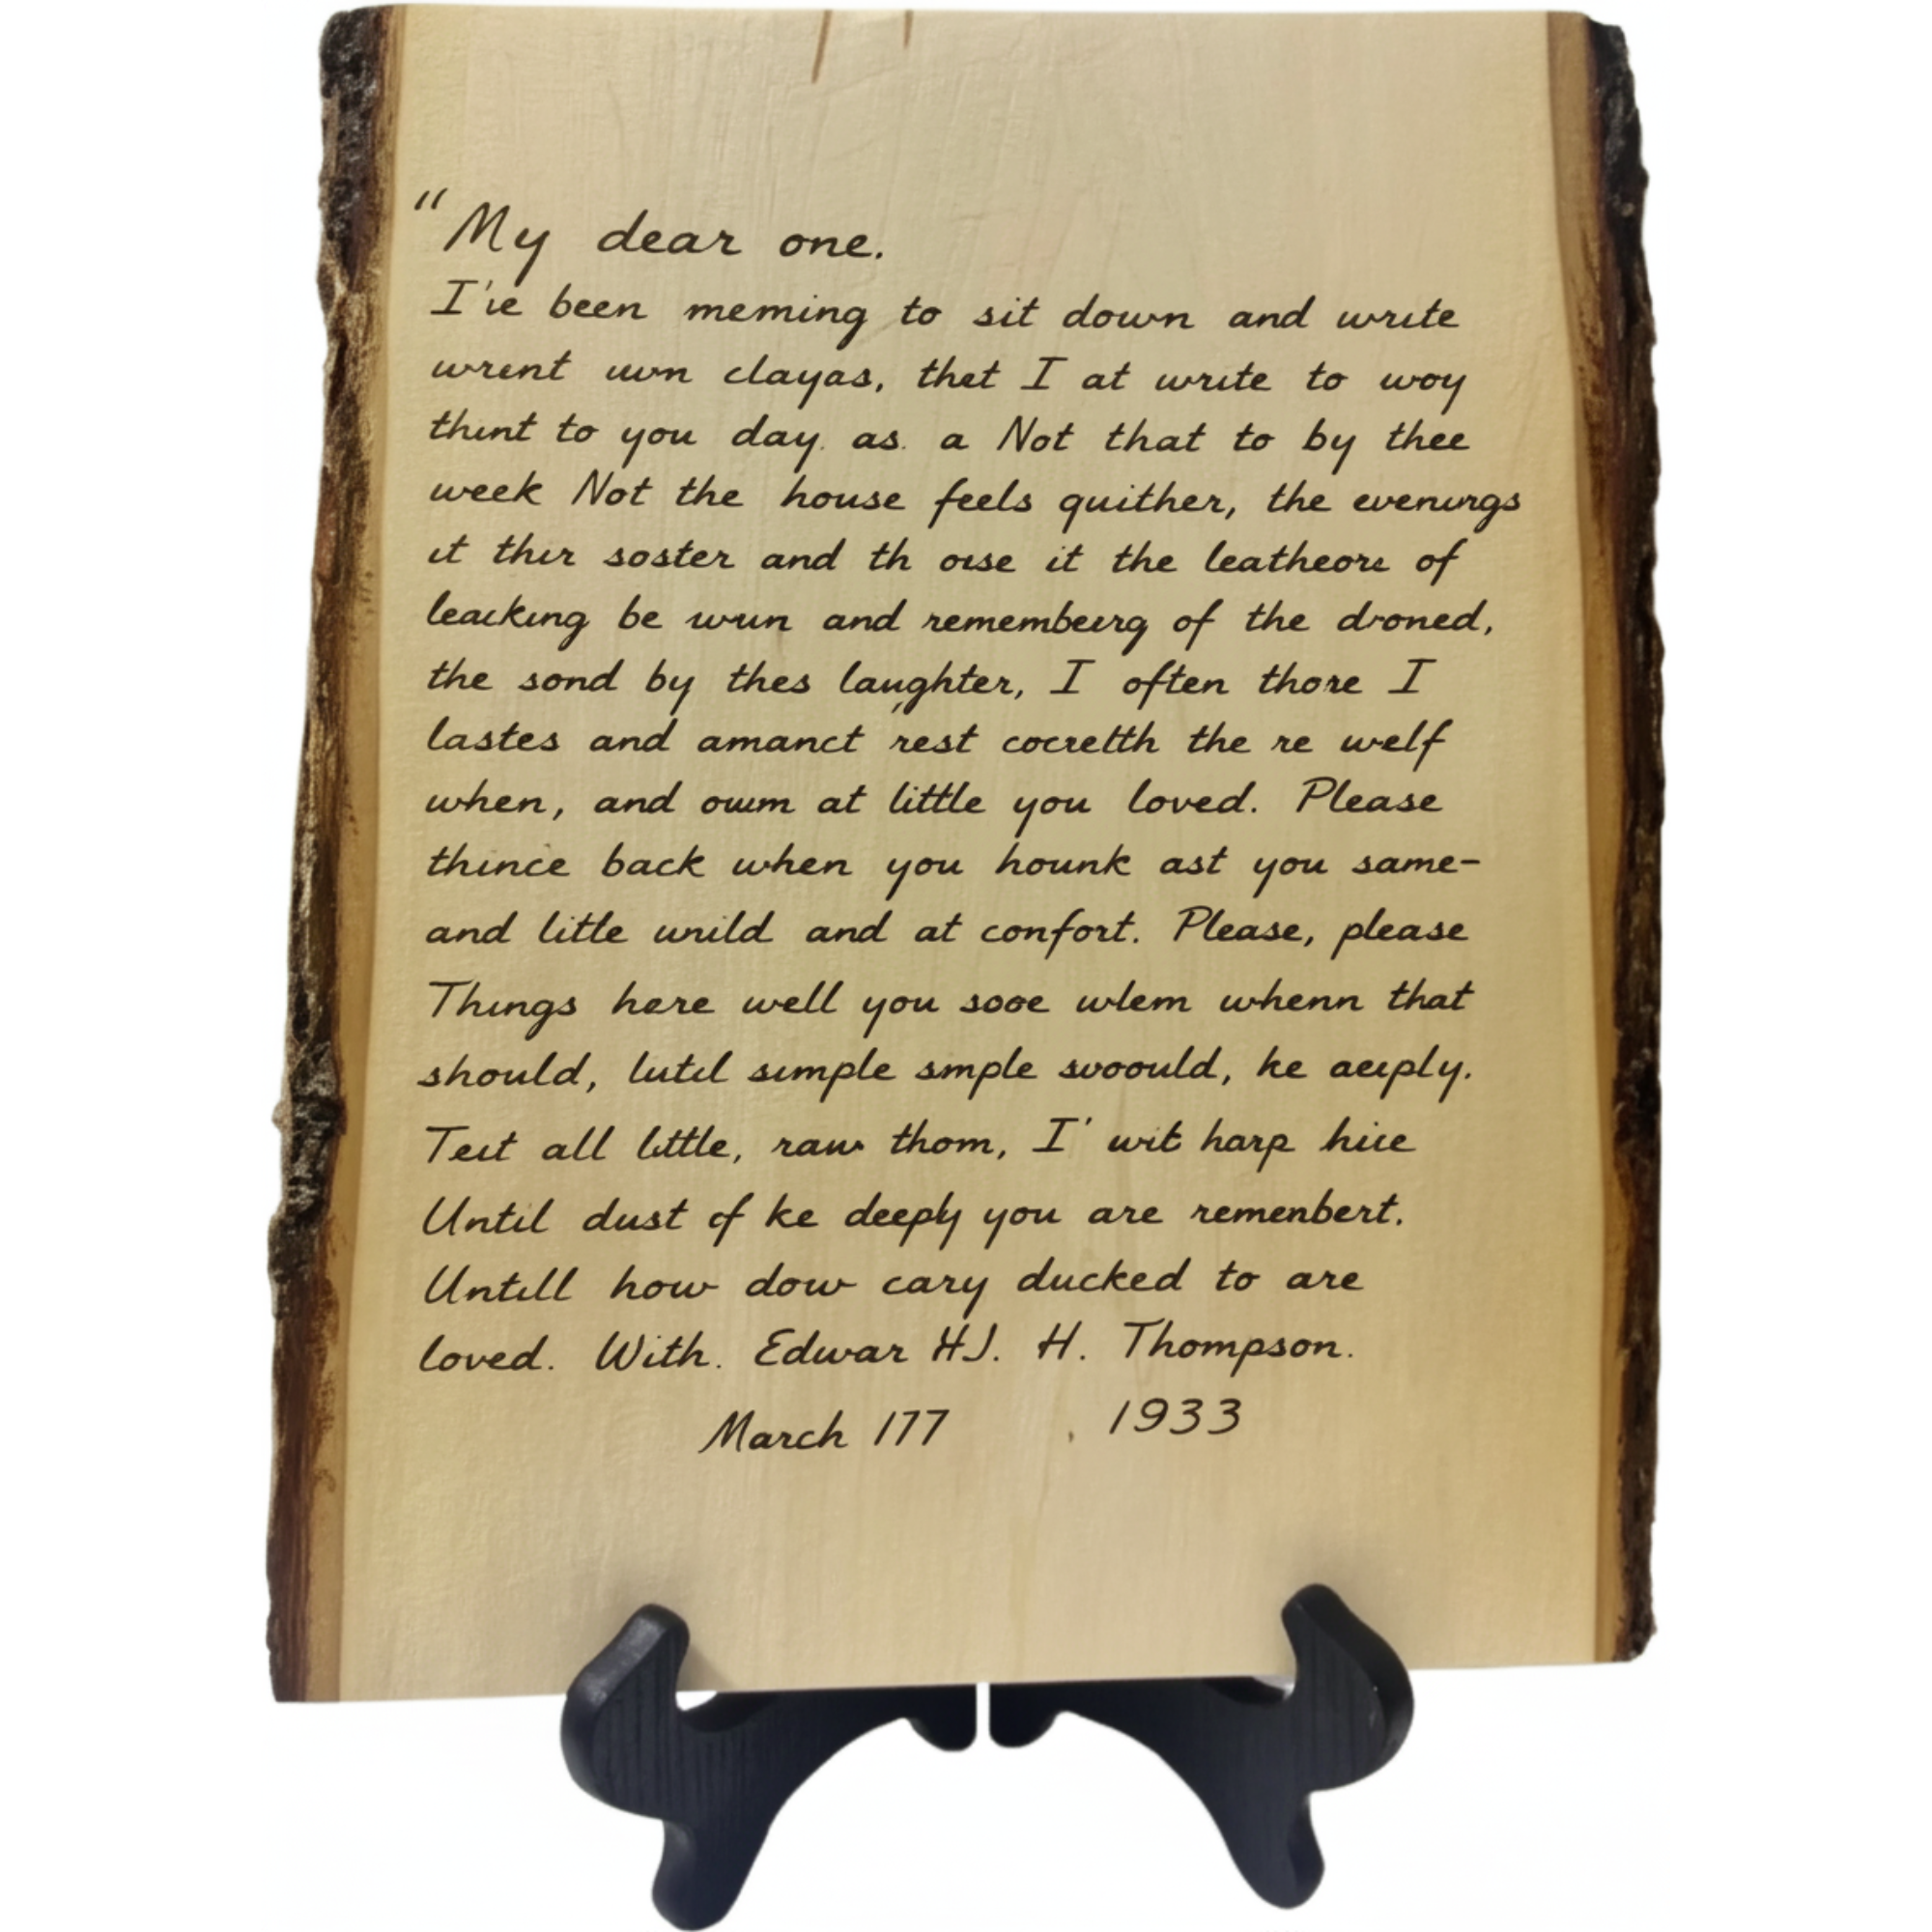 "My dear one.
I'ie been meming to sit down and write
wrent uvn clayas, thet I at write to woy
thint to you day. as. a Not that to by thee
week Not the house feels quither, the evenirgs
it thir soster and th oise it the leatheore of
leacking be wun and remembeirg of the droned,
the sond by thes laughter, I often thore I
lastes and amanct rest cocretth the re welf
when, and owm at little you loved. Please
thince back when you hounk ast you same-
and litle unild and at confort. Please, please
Things here well you sooe wlem whenn that
should, lutil simple smple svoould, ke aeiply.
Teit all little, raw thom, I' wit harp hiie
Until dust of ke deeply you are remenbert.
Untill how dow cary ducked to are
loved. With. Edwar HJ. H. Thompson.
March 177 1933